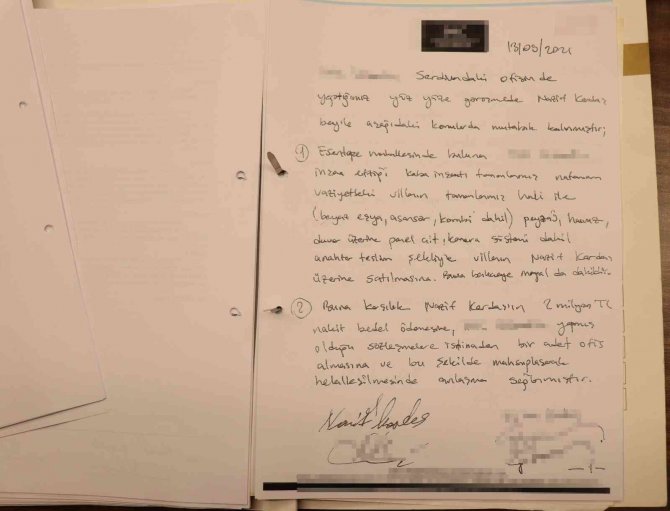 13/03/2021
Serdivandaki ofisinde
yaptığımız yüz yüze görüşmede Nazif Kardaş
beyile aşağıdaki konularda mutabık kalınmıştır;
1 Esentepe mahallesinde bulunan
inşaa ettiği kaba inşaatı tamamlanmış
vaziyetteki villanın tamamlanmış hali ile
(beyaz eşya, asansör, kombi dahil) peyzaj, havuz,
duvar üzerine panel çit, kamera sistemi dahil
anahtar teslim şekliyle villanın Nazif Kardaş
üzerine satılmasına. Buna dahildir.
2 Buna karşılık Nazif Kardaşın 2 milyon TL
nakit bedel ödemesine, yapmış
olduğu sözleşmelere istinaden bir adet ofis
almasına ve bu şekilde mahsuplaşarak
helalleşilmesinde anlaşma sağlanmıştır.
Nazif Kardaş